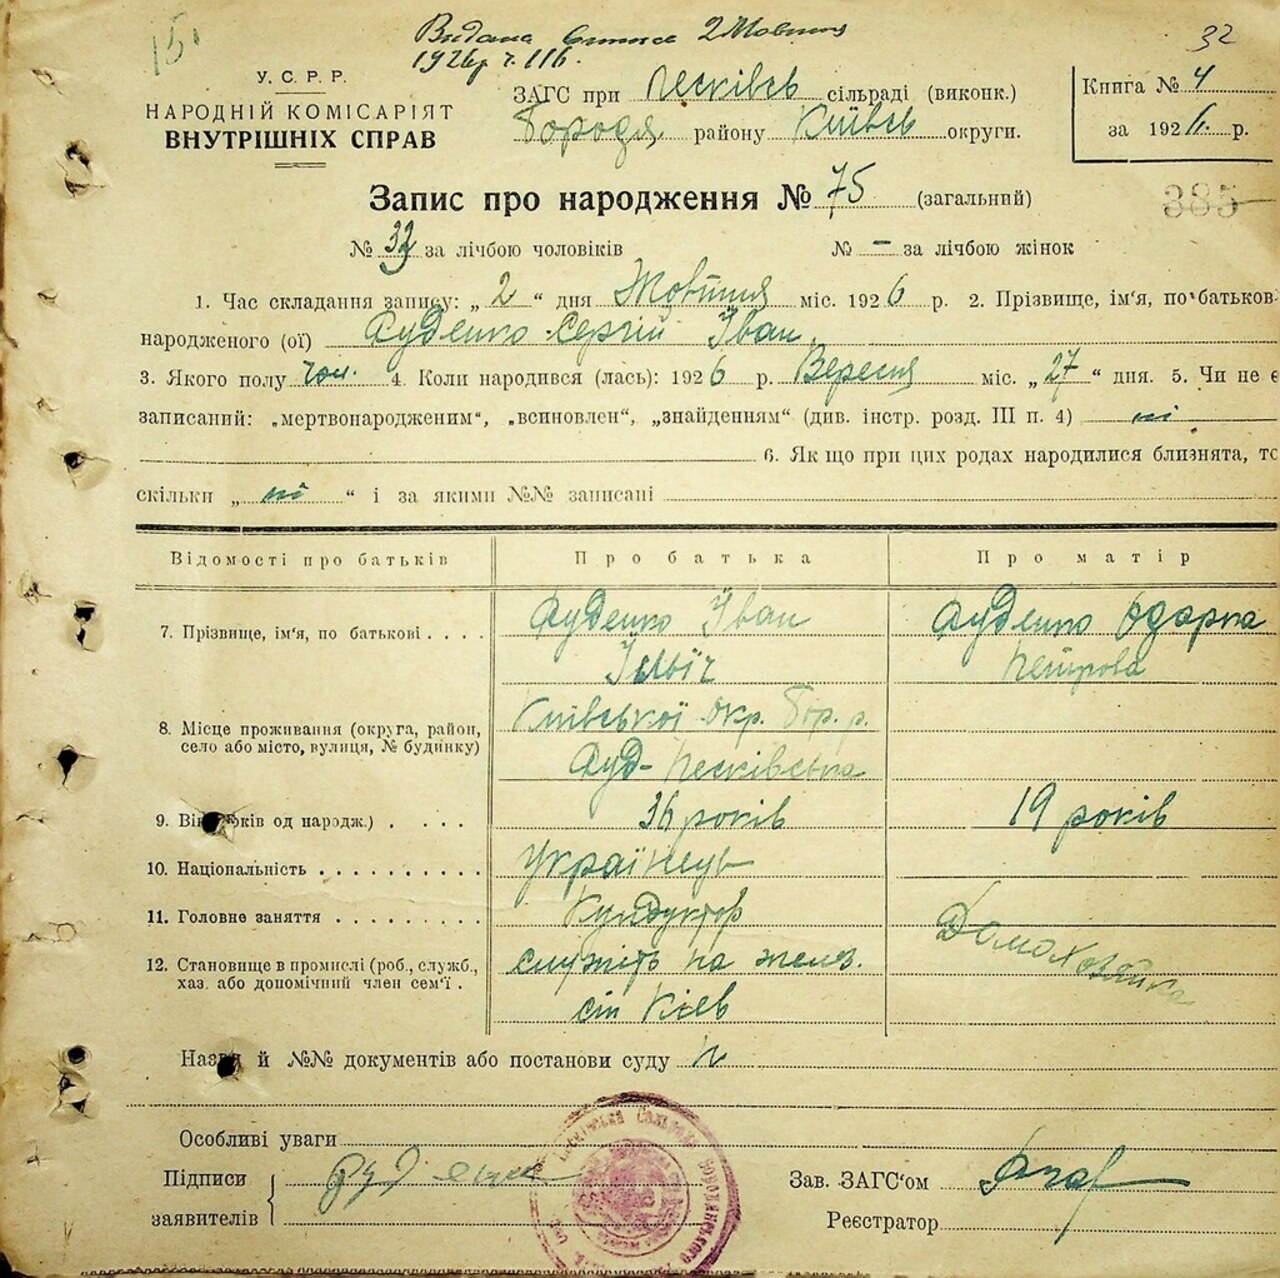 15
Видана виписка 2 Жовтня
1926 р ч. 116.
32
У. С. Р. Р.
НАРОДНІЙ КОМІСАРІЯТ
ВНУТРІШНІХ СПРАВ
ЗАГС при Песківсь сільраді (виконк.)
Бородя. району Київсь округи.
Книга № 4
за 1926. р.
Запис про народження № 75 (загальний)
385
№ 33 за лічбою чоловіків № – за лічбою жінок
1. Час складання запису: „ 2 “ дня Жовтня міс. 1926 р. 2. Прізвище, ім‘я, по батьков
народженого (ої) Руденко Сергій Іван
3. Якого полу чол. 4. Коли народився (лась): 1926 р. Вересня міс. „ 27 “ дня. 5. Чи не є
записаний: „мертвонародженим“, „всиновлен“, „знайденням“ (див. інстр. розд. III п. 4) ні
6. Як що при цих родах народилися близнята, то
скільки „ ні “ і за якими №№ записані
Відомості про батьків Про батька Про матір
7. Прізвище, ім‘я, по батькові . . . . Руденко Іван Руденко Одарка
Ільїч Петрова
8. Місце проживання (округа, район, село або місто, вулиця, № будинку) Київської окр. Бор. р.
Руд- Песківська
9. Вік років од народж.) . . . . 36 років 19 років
10. Національність . . . . . . . . . . Українець
11. Головне заняття . . . . . . . . . Кундуктор Домохозяйка
12. Становище в промислі (роб., служб., хаз. або допомічний член сем‘ї . служить на желез.
сіп Кієв
Назва й №№ документів або постанови суду
Особливі уваги
Підписи
заявителів
Зав. ЗАГС‘ом
Реєстратор